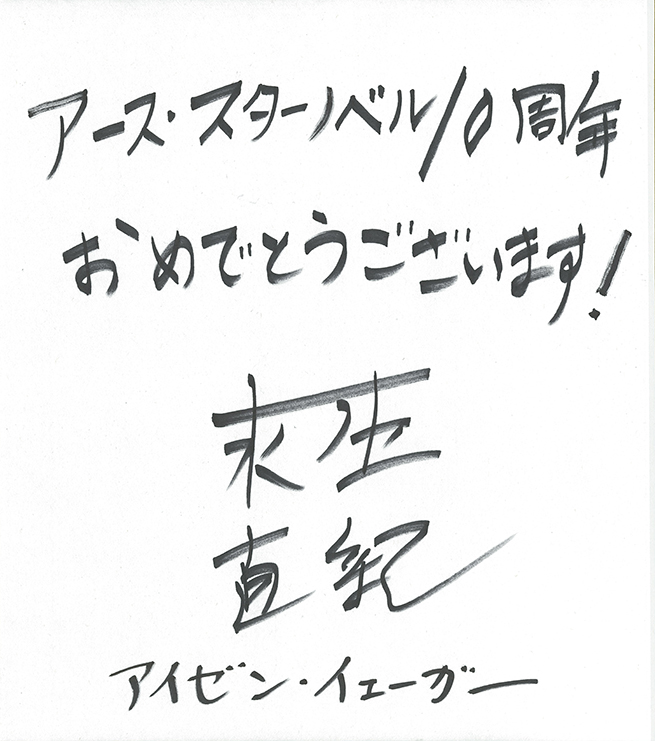 アース・スターノベル10周年
おめでとうございます！
来生
直紀
アイゼン・イェーガー